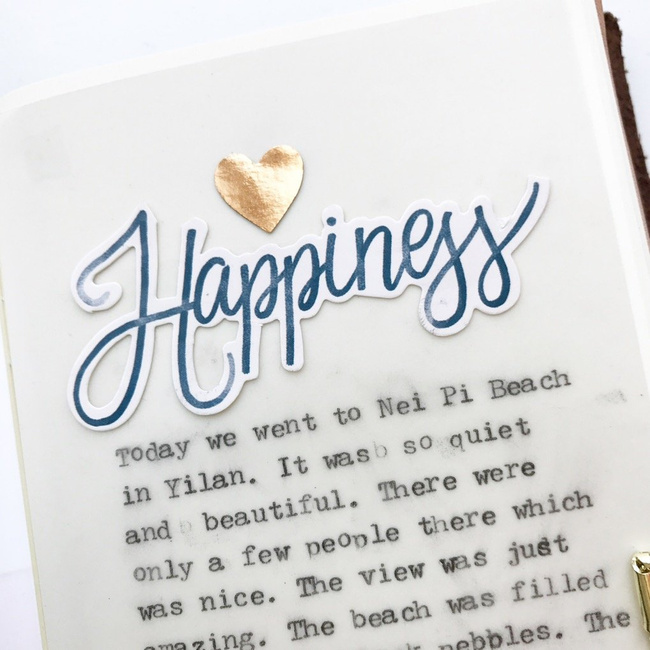 Happiness
Today we went to Nei Pi Beach
in Yilan. It was so quiet
and beautiful. There were
only a few people there which
was nice. The view was just
amazing. The beach was filled
pebbles. The